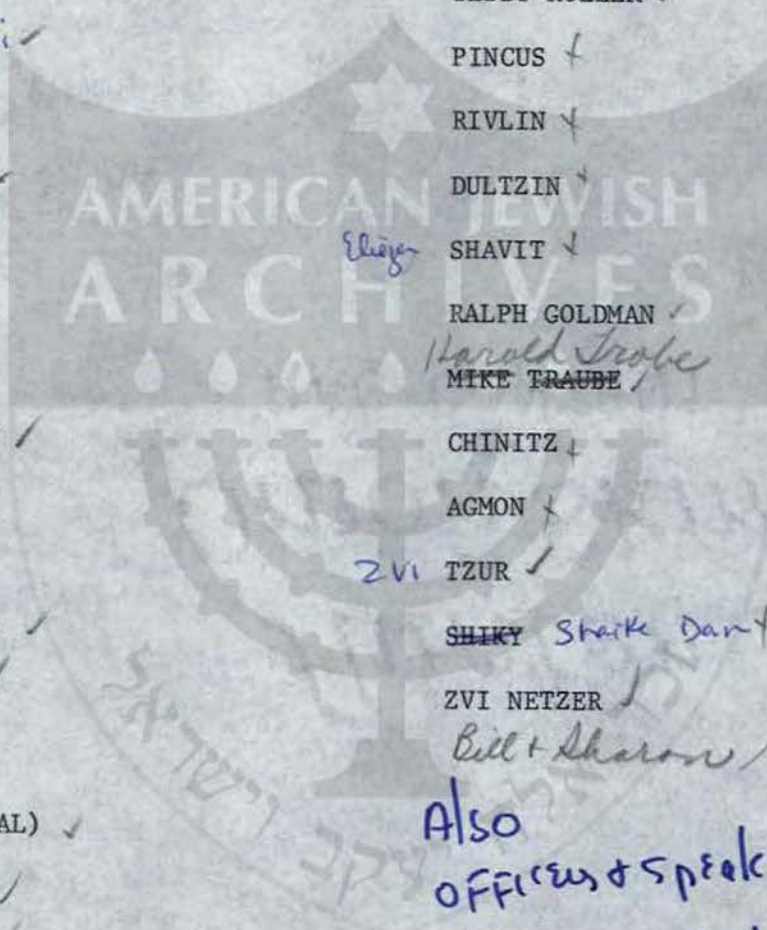 PINCUS
RIVLIN
DULTZIN
AMERICAN JEWISH
Eliezer SHAVIT
ARCHIVES
RALPH GOLDMAN
Harold Trobe
MIKE TRAUBE
CHINITZ
AGMON
ZVI TZUR
SHIKY Shaike Dan
ZVI NETZER
Bill + Sharon
AL)
Also
OFFICERS + Speak